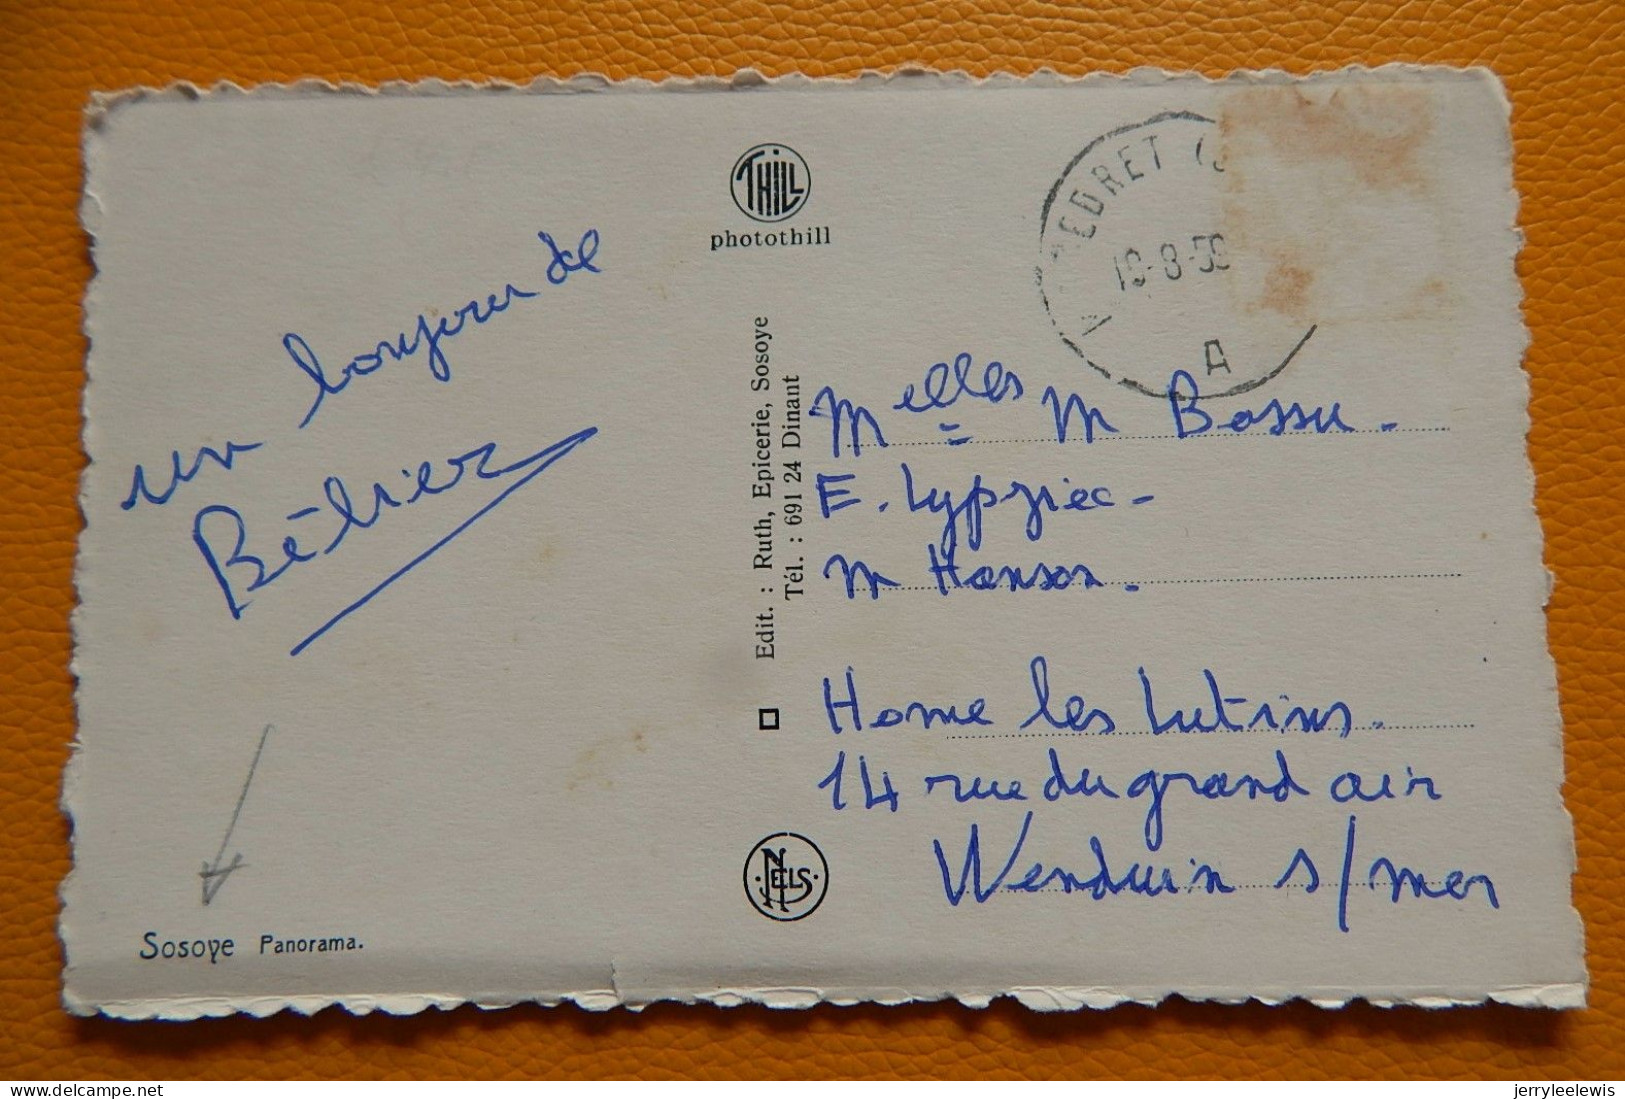 un bonjour de
Bélier
Sosoye Panorama.
THILL
photothill
Edit. : Ruth, Epicerie, Sosoye
Tél. : 691 24 Dinant
NELS
EDRET
-8-5
A
Melles M Bossu.
E. Lypsziec-
M Hanson.
Home les Lutins.
14 rue du grand air
Wenduin s/mer
delcampe.net
jerryleelewis